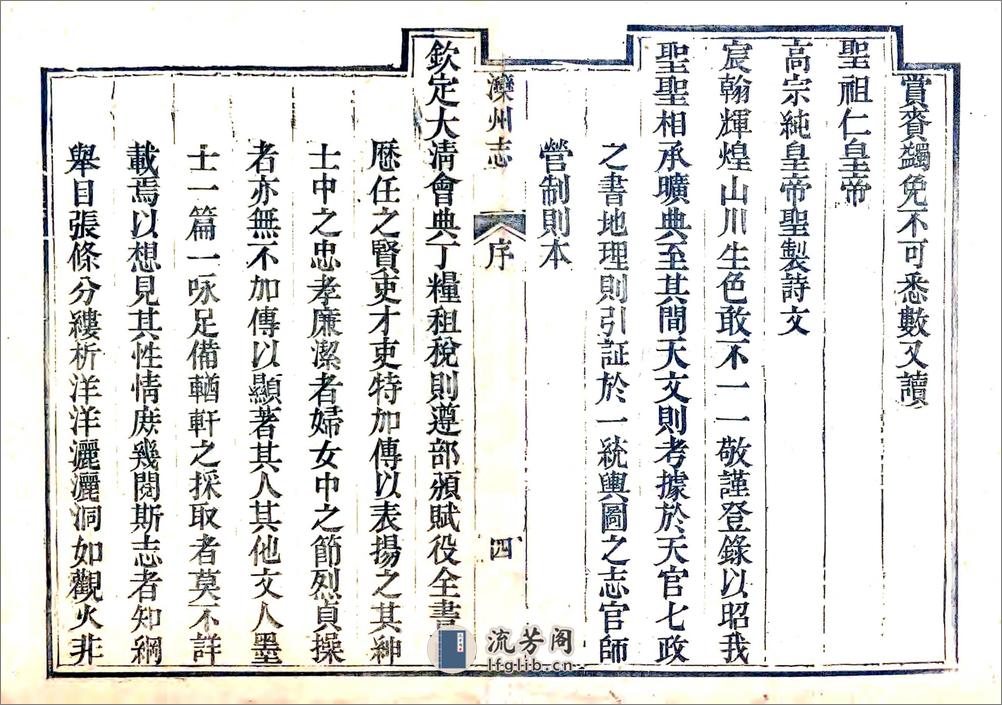 賞賚蠲免不可悉數又讀
聖祖仁皇帝
高宗純皇帝聖製詩文
宸翰輝煌山川生色敢不一一敬謹登錄以昭我
聖聖相承曠典至其間天文則考據於天官七政
之書地理則引証於一統輿圖之志官師
營制則本
灤州志
序
四
欽定大淸會典丁糧租稅則遵部頒賦役全書
歷任之賢吏才吏特加傳以表揚之其紳
士中之忠孝廉潔者婦女中之節烈貞操
者亦無不加傳以顯著其人其他文人墨
士一篇一咏足備輶軒之採取者莫不詳
載焉以想見其性情庶幾閱斯志者知綱
舉目張條分縷析洋洋灑灑洞如觀火非
流芳阁
lfglib.cn